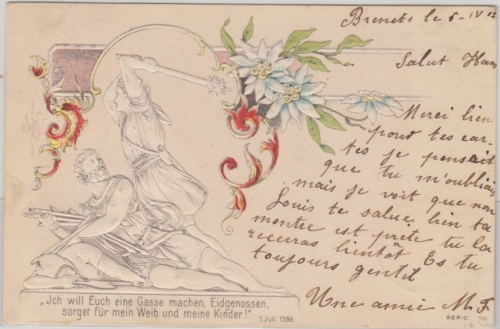 Brenets le 5-IV
Salut
Merci bien
pour tes car-
tes je pensais
que tu m'oubliais
mais je voit que non
Louis te salue bien ta
montre est prete tu la
recevras bientôt Es tu
toujours gentil
Une amie M. F.
„Ich will Euch eine Gasse machen, Eidgenossen,
sorget für mein Weib und meine Kinder!"
1. Juli 1386.
SERIE